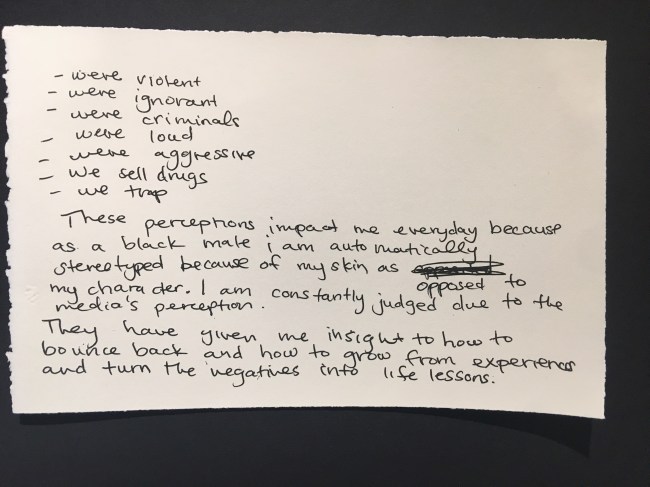 - were violent
- were ignorant
- were criminals
- were loud
- were aggressive
- We sell drugs
- we trap
These perceptions impact me everyday because
as a black male i am automatically
stereotyped because of my skin as
opposed to
my character. I am constantly judged due to the
media's perception.
They have given me insight to how to
bounce back and how to grow from experiences
and turn the negatives into life lessons.